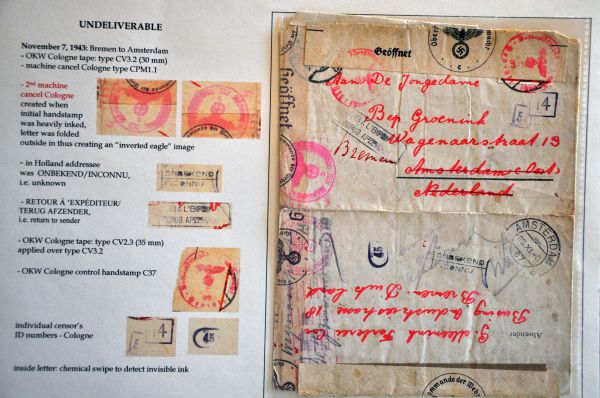 UNDELIVERABLE
November 7, 1943: Bremen to Amsterdam
- OKW Cologne tape: type CV3.2 (30 mm)
- machine cancel Cologne type CPM1.1
- 2nd machine
cancel Cologne
created when
initial handstamp
was heavily inked,
letter was folded
outside in thus creating an "inverted eagle" image
- in Holland addressee
was ONBEKEND/INCONNU,
i.e. unknown
- RETOUR Á 'EXPÉDITEUR/
TERUG AFZENDER,
i.e. return to sender
- OKW Cologne tape: type CV2.3 (35 mm)
applied over type CV3.2
- OKW Cologne control handstamp C37
individual censor's
ID numbers - Cologne
14
5
45
inside letter: chemical swipe to detect invisible ink
Geöffnet
Geöffnet
Aan De Jongedame
Bep Groenink
Wagenaarstraat 19
Amsterdam Oost
Nederland
Bremen
14
5
AMSTERDAM
ONBEKEND
INCONNU
45
Absender
Bremen. Duitsland